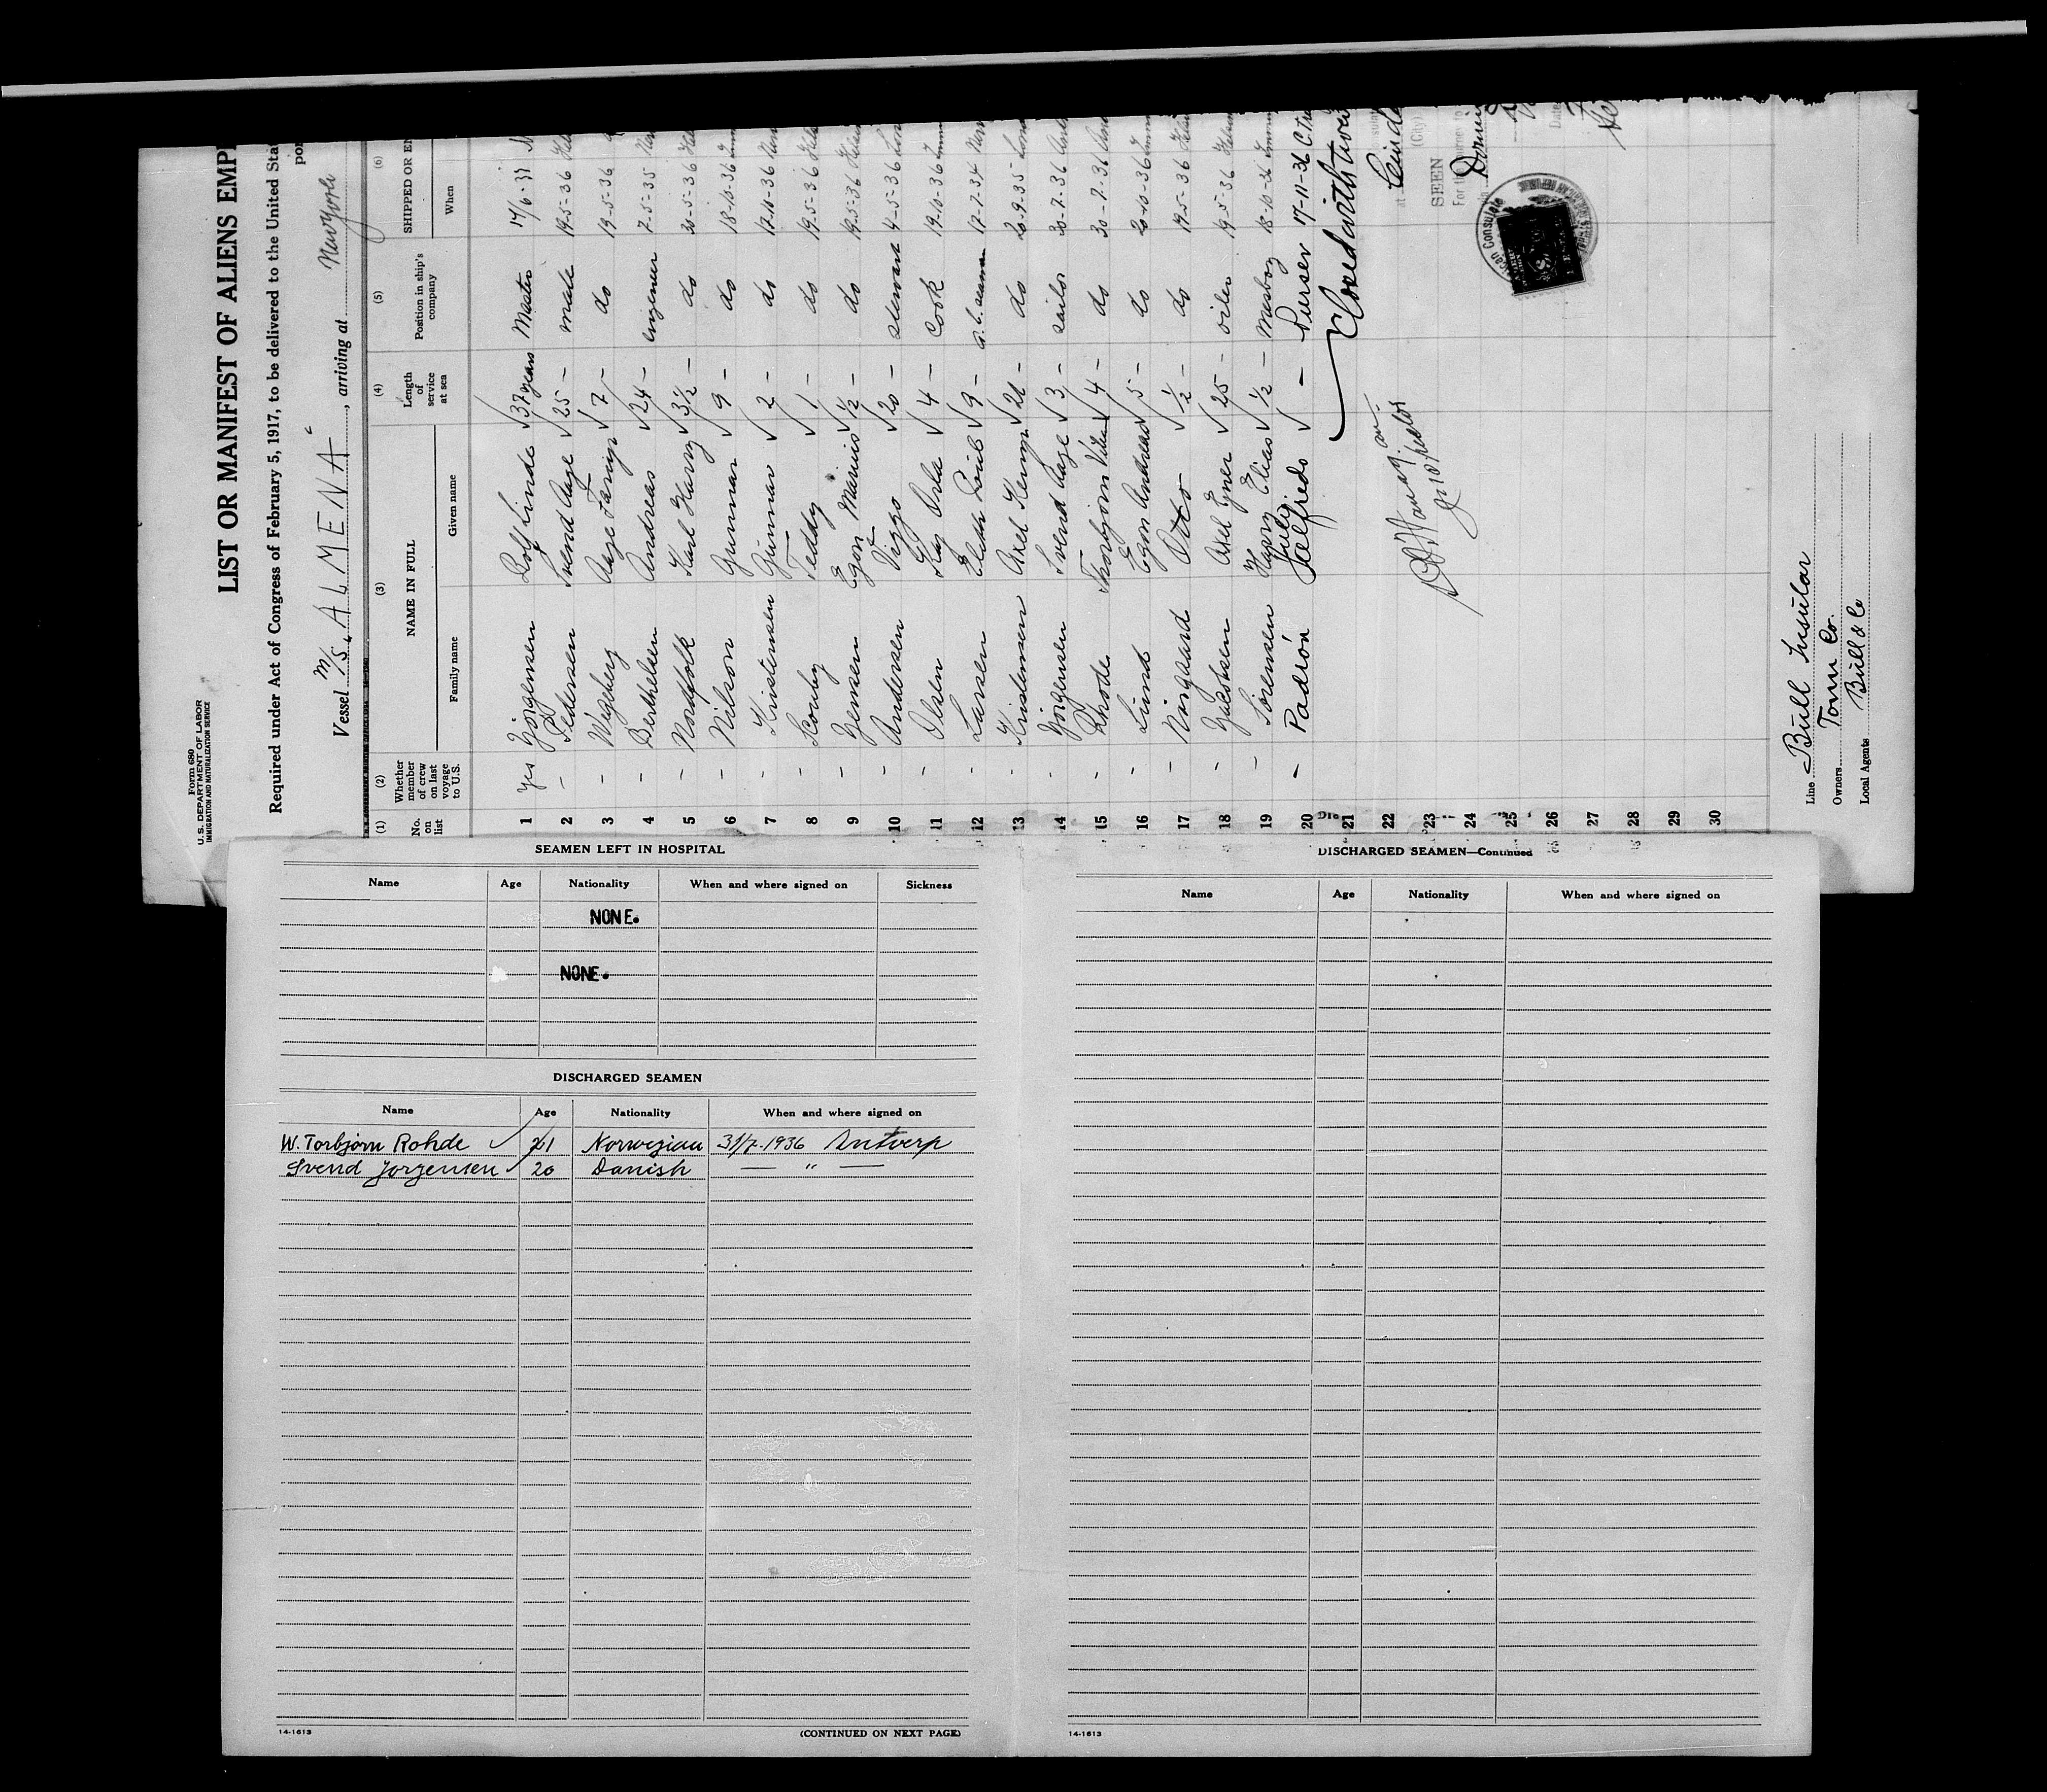 Form 680
U. S. DEPARTMENT OF LABOR
IMMIGRATION AND NATURALIZATION SERVICE
LIST OR MANIFEST OF ALIENS EMP
Required under Act of Congress of February 5, 1917, to be delivered to the United Sta
por
Vessel M/S "ALMENA", arriving at Newyork
(1) (2) (3) (4) (5) (6)
No. on list Whether member of crew on last voyage to U.S. NAME IN FULL Length of service at sea Position in ship's company SHIPPED OR EN
Family name Given name When
1 Yes Jörgensen Rolf Linde 37 years Master 14/6-33
2 - Pedersen Svend Aage 25 - mate 19-5-36
3 - Wigeberg Aage 7 - do 19-5-36
4 - Berthelsen Andreas 24 - engineer 7-5-35
5 - Nordfolk Karl Harry 3½ - do 30-5-36
6 - Nilson Gunnar 9 - do 18-10-36
7 - Kristensen Gunnar 2 - do 17-10-36
8 - Scouby Teddy 1 - do 19-5-36
9 - Jensen Egon Marius ½ - do 19-5-36
10 - Andersen Viggo 20 - steward 4-5-36
11 - Olsen Kaj Orla 4 - Cook 19-10-36
12 - Larsen 9 - a.b. seaman 17-7-34
13 - Kristensen Axel 21 - do 20-9-35
14 - Jörgensen Svend Aage 3 - sailor 30-7-36
15 - Rhode Thorbjorn 4 - do 30-7-36
16 - Lind Egon Andreas 5 - do 20-10-36
17 - Nörgaard Otto ½ - do 19-5-36
18 - Jakobsen Axel Ejner 25 - oiler 19-5-36
19 - Sörensen Harry Elias ½ - Messboy 18-10-36
20 - Padrón Alfredo - Purser 17-11-36
21
22
23
24
25
26
27
28
29
30
at
(City)
SEEN
For the journey to
Date
Line Bull Insular
Owners Torm Co.
Local Agents Bull & Co
SEAMEN LEFT IN HOSPITAL
Name Age Nationality When and where signed on Sickness
NONE.
NONE.
DISCHARGED SEAMEN
Name Age Nationality When and where signed on
W. Torbjørn Rohde 21 Norwegian 31/7-1936 Antverp
Svend Jorgensen 20 Danish — " —
14-1613
(CONTINUED ON NEXT PAGE)
DISCHARGED SEAMEN—Continued
Name Age Nationality When and where signed on
14-1613